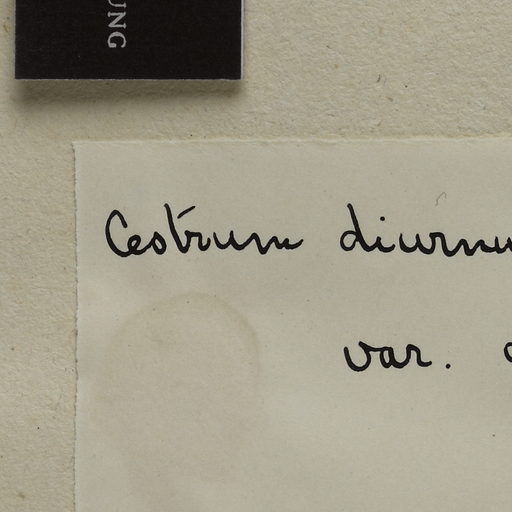 UNG
Cestrum diurnu
var.